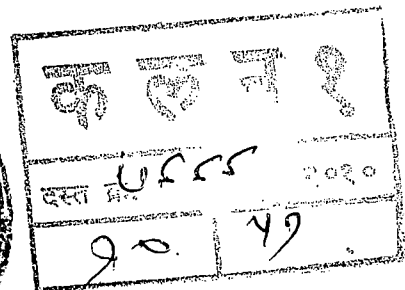 क ल न १
दस्त क्र. ५८८८ २०१०
१० ५१